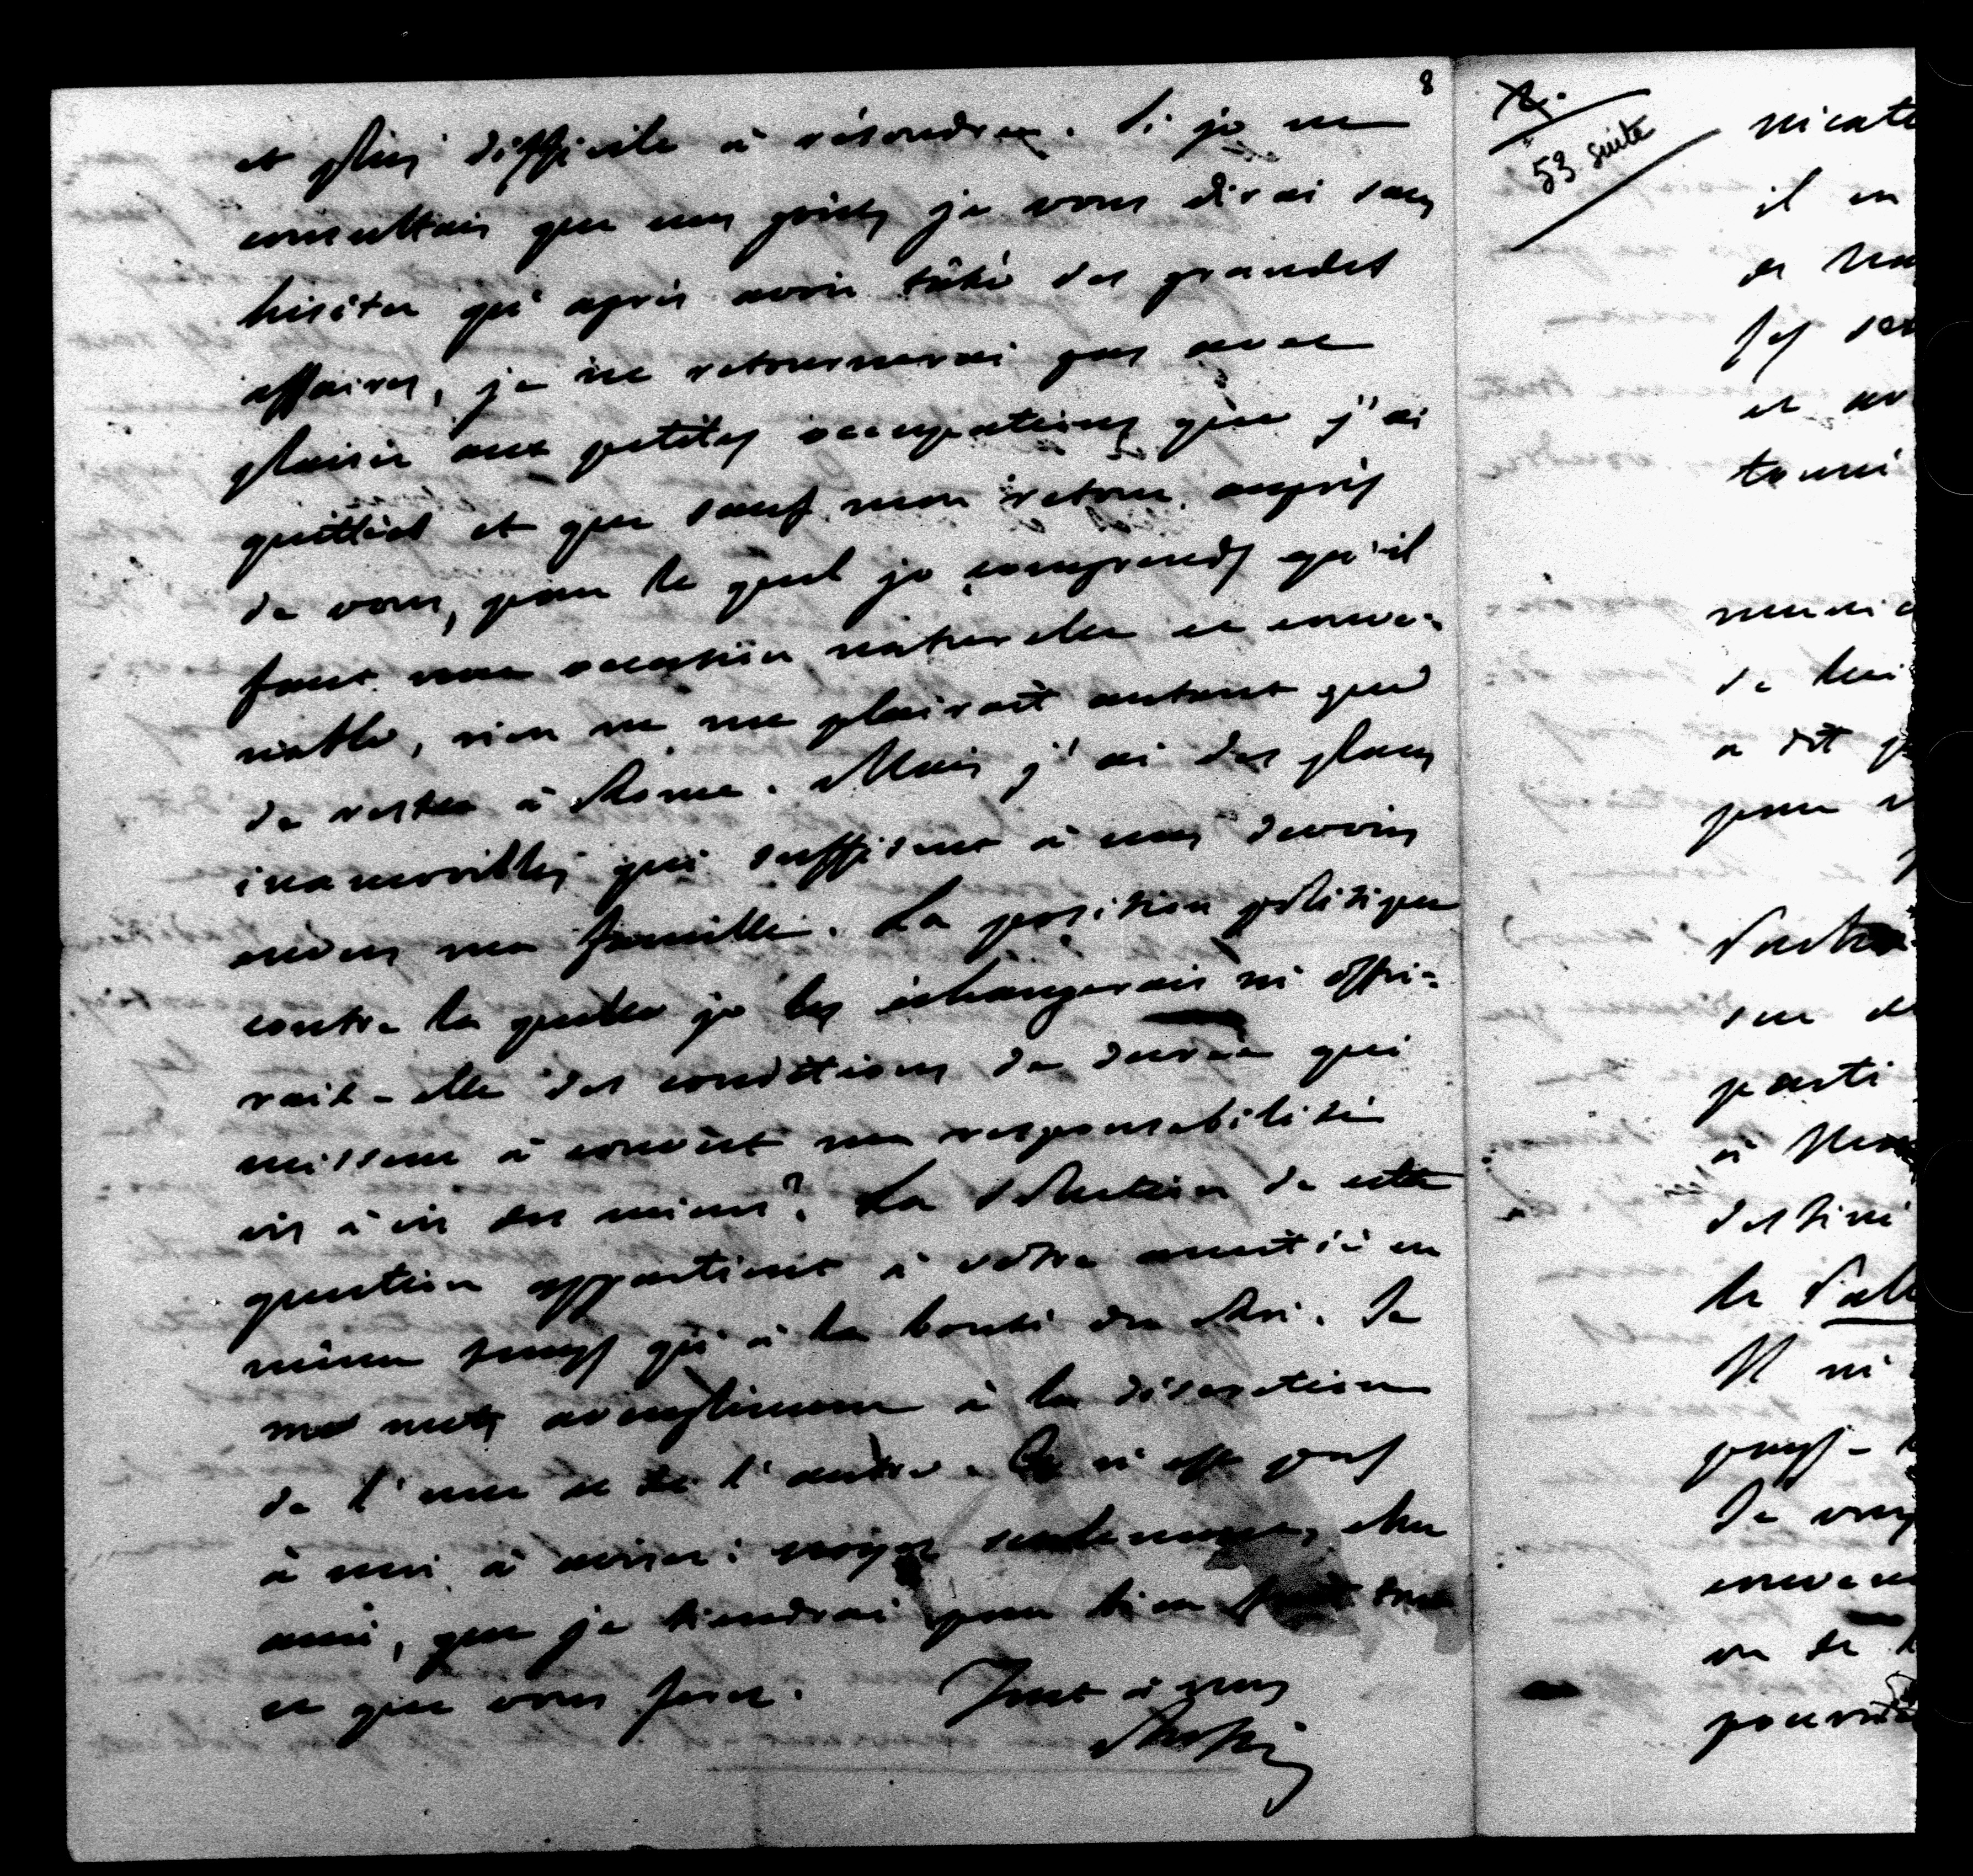 8
et plus difficile à résoudre. Si je ne
consultais que mes goûts je vous dirai sans
hésiter qu'après avoir tâté des grandes
affaires, je ne retournerai pas avec
plaisir aux petites occupations que j'ai
quittées et que sauf mon retour auprès
de vous, pour le quel je comprends qu'il
faut une occasion naturelle et conve-
nable, rien ne me plairait autant que
de rester à Rome. Mais j'ai des places
inamovibles qui suffisent à mes devoirs
envers ma famille. La position politique
contre la quelle je les échangerais m'offri-
rait-elle des conditions de durée qui
missent à couvert ma responsabilité
vis à vis des miens? La solution de cette
question appartient à votre amitié en
même temps qu'à la bonté du Roi. Je
me mets aveuglément à la discrétion
de l'une et de l'autre. Ce n'est pas
à moi à aviser: croyez seulement, cher
ami, que je tiendrai pour bien tout
ce que vous ferez. Tout à vous
Rossi
53 suite
nicat
il en
de
ses
et av
tou
de lui
a dit
pour
sur
parti
à
destiné
le
Il
Je
ou de
pour